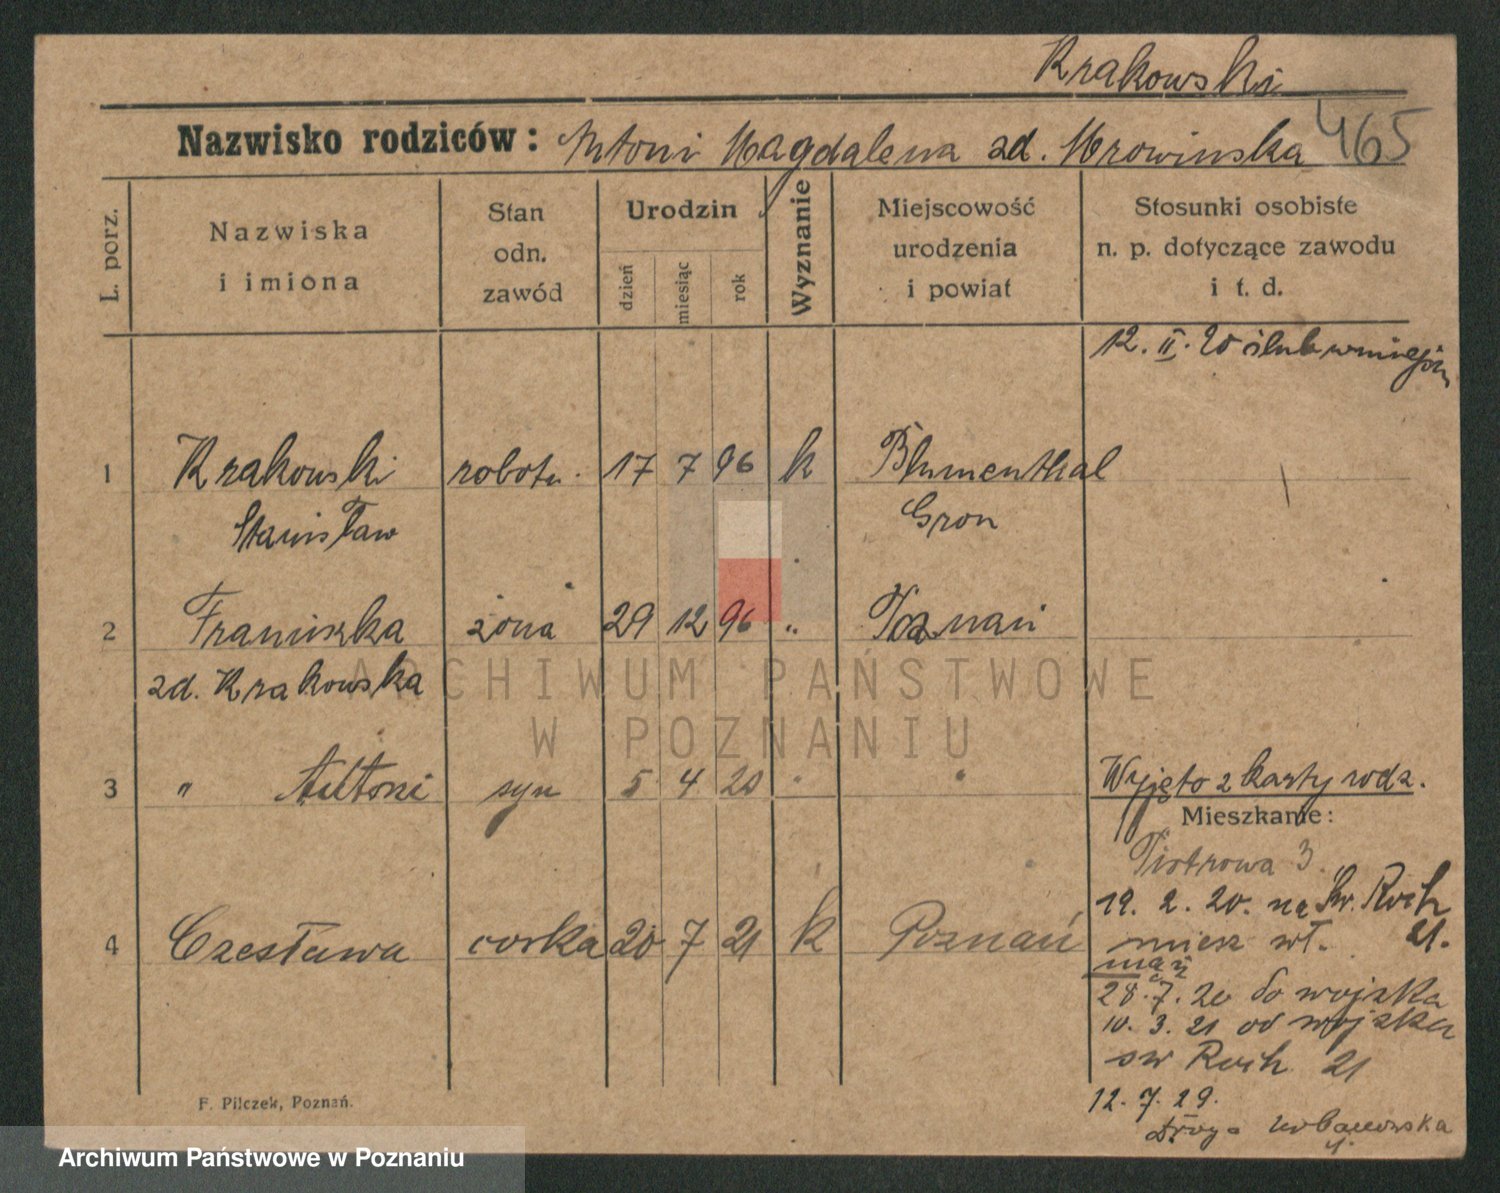 Krakowski
Nazwisko rodziców: Antoni Magdalena zd. Mrowinska 465
L. porz.
Nazwiska i imiona
Stan odn. zawód
Urodzin
dzień miesiąc rok
Wyznanie
Miejscowość urodzenia i powiat
Stosunki osobiste n. p. dotyczące zawodu i t. d.
12. II. 20 ślub w miejscu
1 Krakowski robotn. 17 7 96 k Blumenthal
Stanisław Gron
2 Franciszka żona 29 12 96 " Poznań
zd. Krakowska
3 " Antoni syn 5 4 20 "
Wyjęto z karty rodz.
Mieszkanie:
Piotrowa 3
19. 2. 20. na św. Roch
4 Czesława corka 20 7 21 k Poznań
miesz wł. 21.
mąż
28. 7. 20 do wojska
10. 3. 21 od wojska
św Roch 21
12. 7. 29.
Droga
F. Pilczek, Poznań.
ARCHIWUM PAŃSTWOWE
W POZNANIU
Archiwum Państwowe w Poznaniu